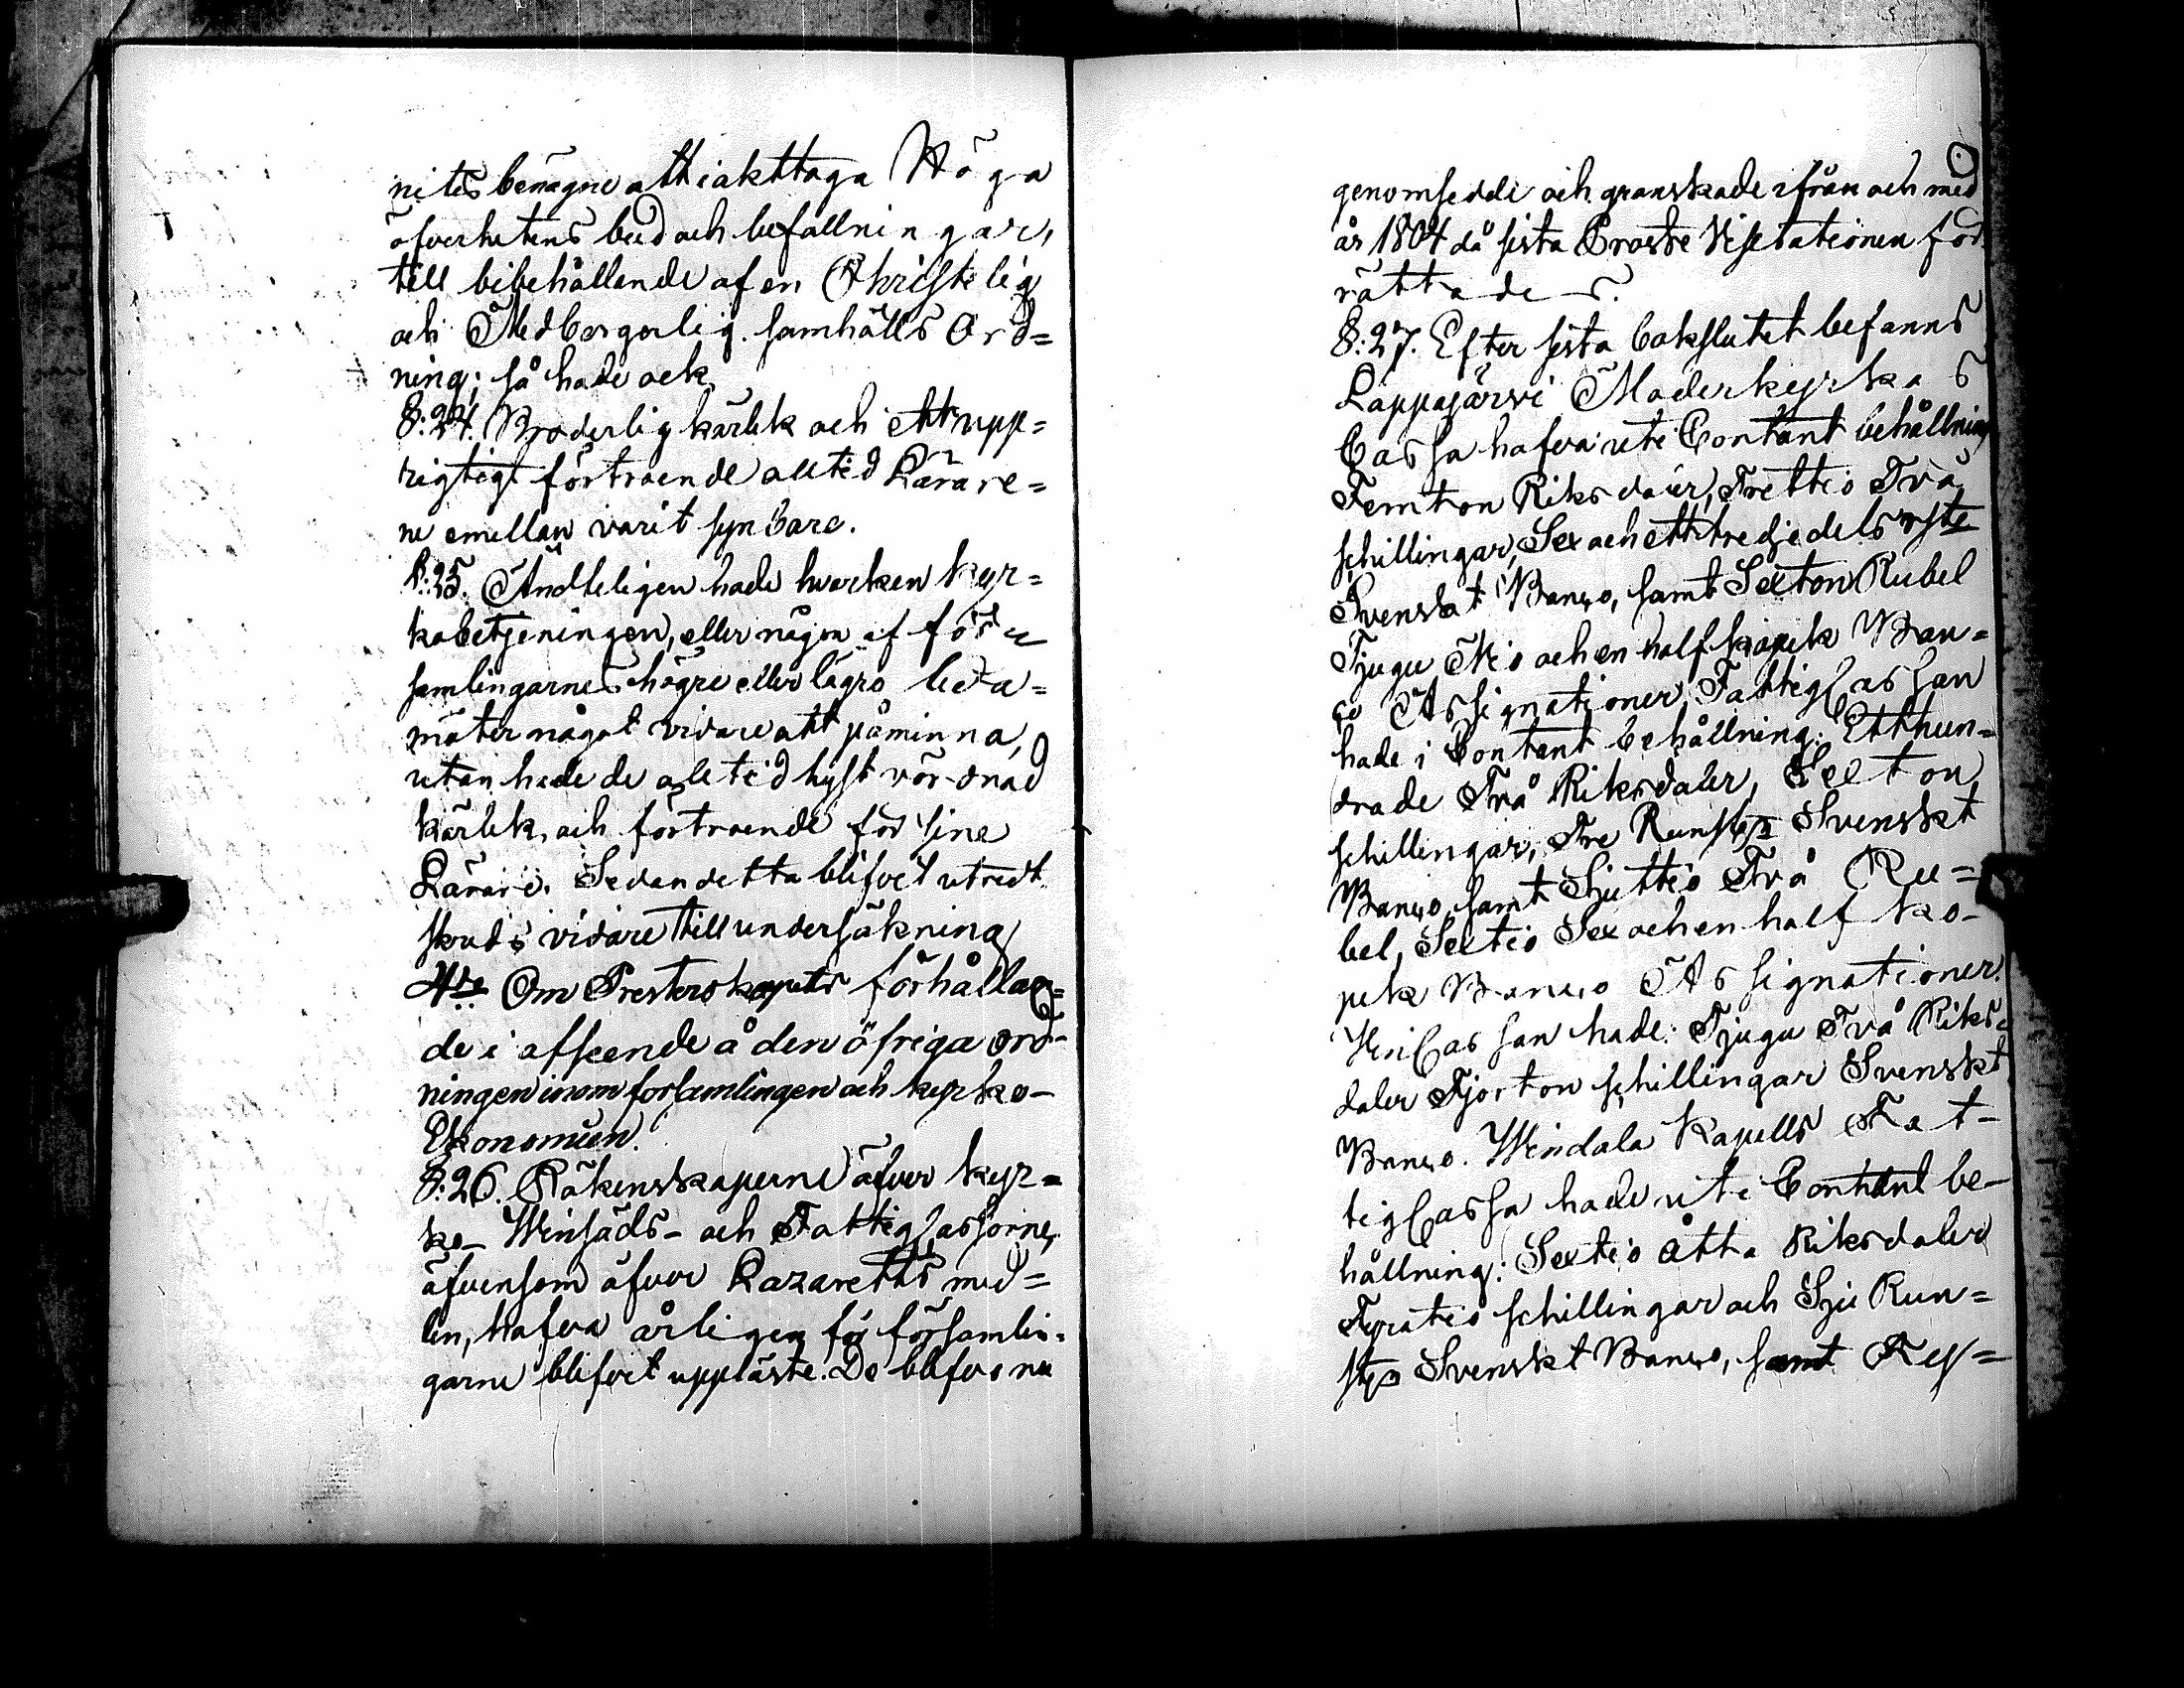 nites benägne att iakttaga Höga
öfverhetens bud och befallningar,
till bibehållande af en Christelig
och Medborgerlig samhälls Ord=
ning; så hade ock
§:24. Broderlig kärlek och ett upp=
rigtigt förtroende alltid Lärare=
ne emellan varit synbare.
§:25. Ändteligen hade hvarken kyr=
kobetjeningen, eller någon af för=
samlingarnes högre eller lägre leda=
möter något vidare att påminna,
utan hade de alltid hyst vördnad
kärlek och förtroende för sine
Lärare. Sedan detta blifvit utredt
skreds vidare till undersökning
4de Om Presterskapets förhållan=
de i afseende å den öfriga ord-
ningen inom församlingen och kyrko-
Ekonomien.
§:26. Räkenskaperne öfver kyr=
ko- Winsäds- och Fattig Cassorne,
äfvensom öfver Lazaretts med=
len, hafva årligen för församlin=
garne blifvit uppläste. De blefvo nu
genomsedde och granskade ifrån och med
år 1804 då sista Proste Visitationen för
rättades.
§:27. Efter sista bokslutet befanns
Lappajärvi Moderkyrkas
Cassa hafva uti Contant behållning
Femton Riksdaler, Trettio Två
schillingar, Sex och ett tredjedels rste
Svenskt Banco, samt Sexton Rubel
Tjugu Nio och en half kopek Ban=
co Assignationer, Fattig Cassan
hade i Contant behållning: Etthun=
drade Två Riksdaler, Sexton
schillingar, Tre Runstyc Svenskt
Banco, samt Sjuttio Två Ru=
bel, Sextio Sex och en half ko-
pek Banco Assignationer.
Vin Cassan hade: Tjugu Två Riks=
daler Fjorton schillingar Svenskt
Banco. Windala Kapells Fat-
tig Cassa hade uti Contant be-
hållning: Sextio åtta Riksdaler
Fyratio schillingar och Sju Run=
styc Svenskt Banco, samt Fyr=